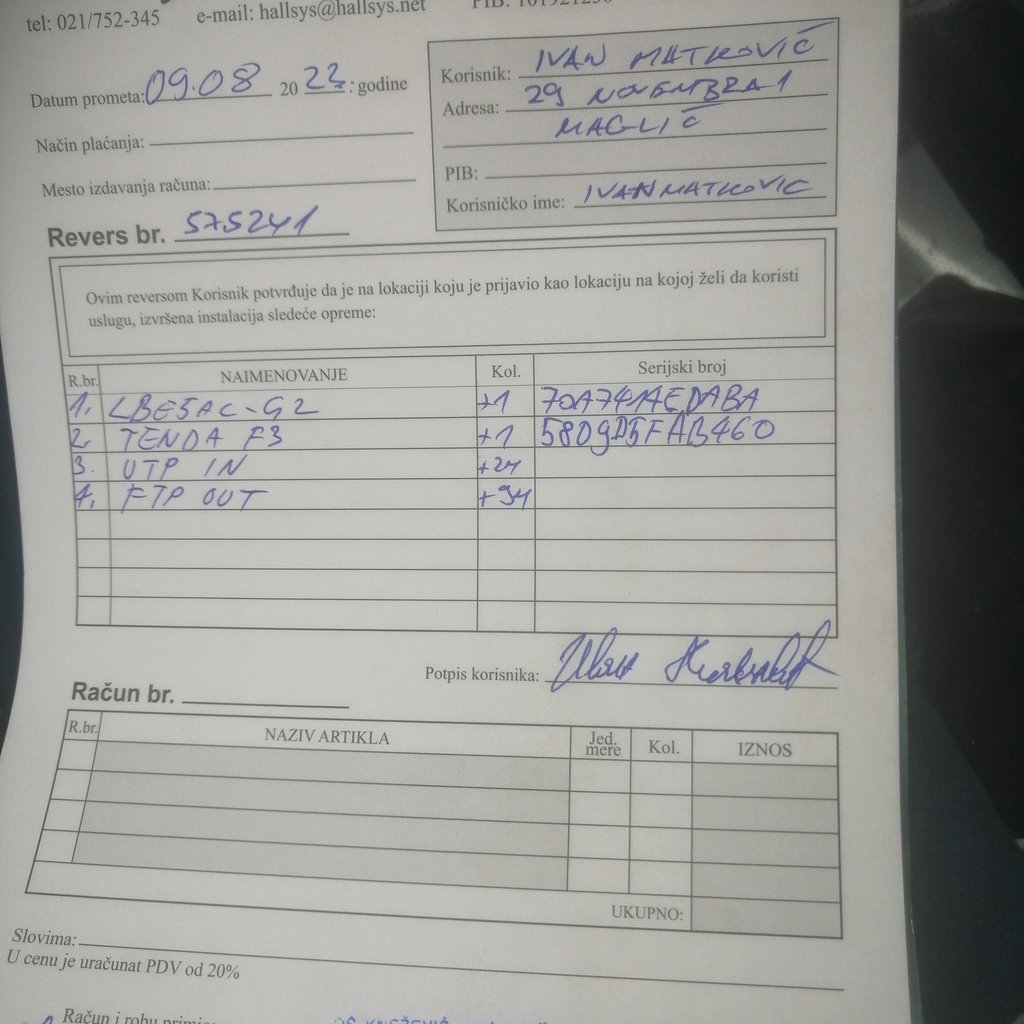 tel: 021/752-345 e-mail: hallsys@hallsys.net PIB:
Datum prometa: 09.08 2022. godine
Način plaćanja:
Mesto izdavanja računa:
Korisnik: IVAN MATKOVIĆ
Adresa: 29 NOVEMBRA 1
MAGLIĆ
PIB:
Korisničko ime: IVANMATKOVIC
Revers br. 575241
Ovim reversom Korisnik potvrđuje da je na lokaciji koju je prijavio kao lokaciju na kojoj želi da koristi
uslugu, izvršena instalacija sledeće opreme:
R.br. NAIMENOVANJE Kol. Serijski broj
1. LBE5AC-G2 +1 70A741AEDABA
2. TENDA F3 +1 5809D5FAB460
3. UTP IN +2M
4. FTP OUT +9M
Potpis korisnika:
Račun br.
R.br. NAZIV ARTIKLA Jed. mere Kol. IZNOS
UKUPNO:
Slovima:
U cenu je uračunat PDV od 20%
Račun i robu